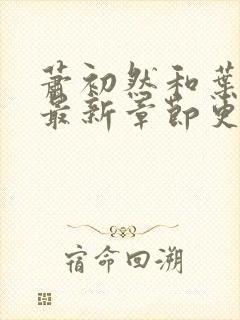 萧初然和葉
最新章節更
宿命回溯